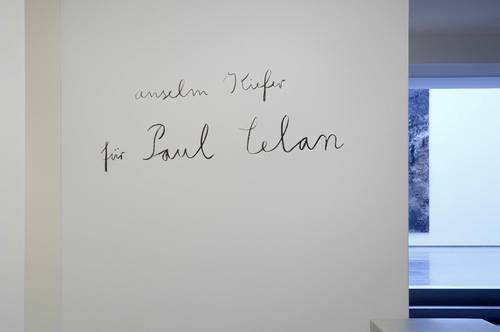 anselm Kiefer
für Paul Celan